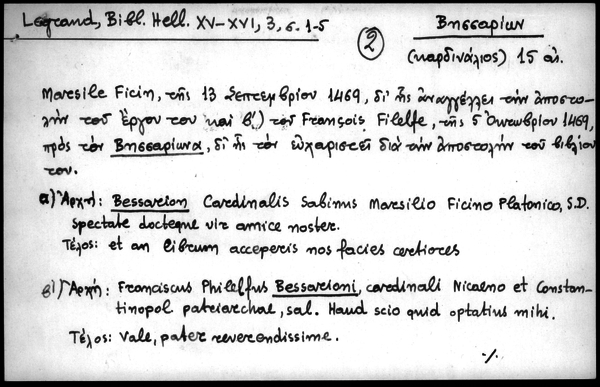 Legrand, Bibl. Hell. XV-XVI, 3, σ. 1-5
②
Βησσαρίων
(καρδινάλιος) 15 αἰ.
Marsile Ficin, τῆς 13 Σεπτεμβρίου 1469, δι' ἧς ἀναγγέλλει τὴν ἀποστο-
λὴν τοῦ ἔργου του καὶ β') τοῦ François Filelfe, τῆς 5 Ὀκτωβρίου 1469,
πρὸς τὸν Βησσαρίωνα, δι' ἧς τὸν εὐχαριστεῖ διὰ τὴν ἀποστολὴν τοῦ βιβλίου
του.
α) Ἀρχή: Bessarion Cardinalis Sabinus Marsilio Ficino Platonico, S.D.
Spectate docteque vir amice noster.
Τέλος: et an librum acceperis nos facies certiores
β') Ἀρχή: Franciscus Philelfus Bessarioni, cardinali Nicaeno et Constan-
tinopol patriarchae, sal. Haud scio quid optatius mihi.
Τέλος: Vale, pater reverendissime.
./.